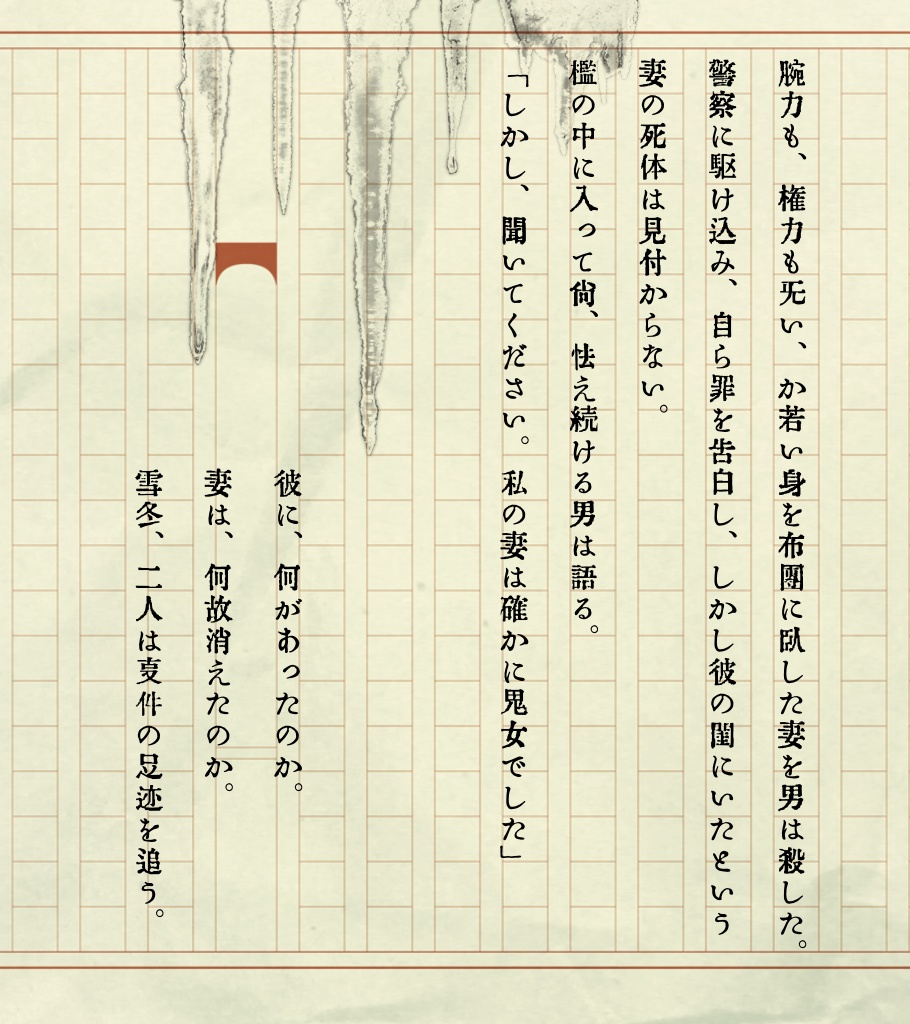 腕力も、権力も旡い、か若い身を布團に臥した妻を男は殺した。
警察に駆け込み、自ら罪を告白し、しかし彼の閨にいたという
妻の死体は見付からない。
檻の中に入って尙、怯え続ける男は語る。
「しかし、聞いてください。私の妻は確かに鬼女でした」
彼に、何があったのか。
妻は、何故消えたのか。
雪冬、二人は事件の足迹を追う。